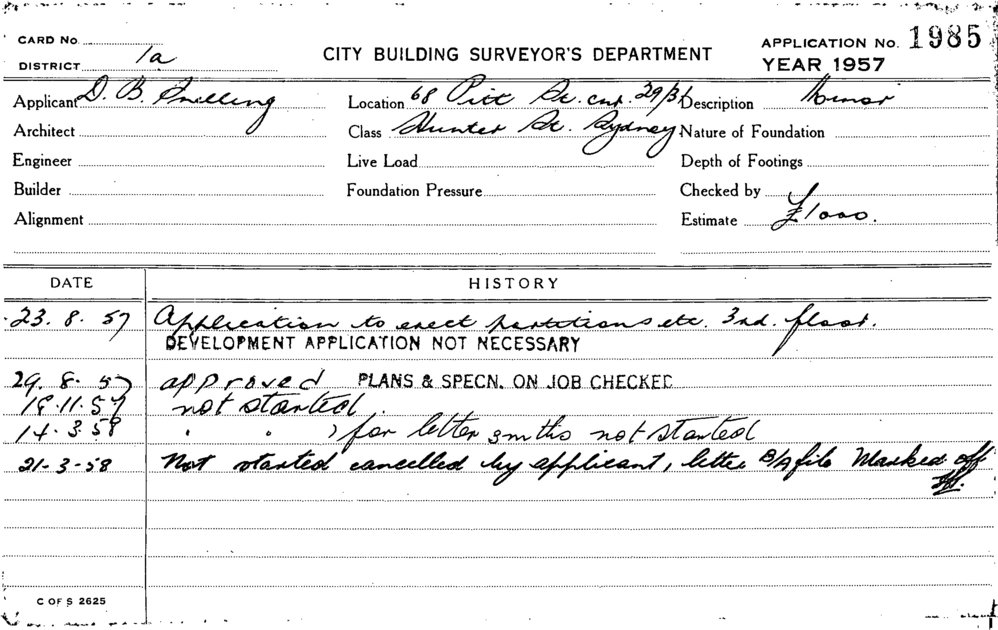 CARD No.
DISTRICT 1a
CITY BUILDING SURVEYOR'S DEPARTMENT
APPLICATION No. 1985
YEAR 1957
Applicant D. B. Snelling
Location 68 Pitt St. cnr. 29/31
Description Minor
Architect
Class Hunter St. Sydney
Nature of Foundation
Engineer
Live Load
Depth of Footings
Builder
Foundation Pressure
Checked by
Alignment
Estimate £1000.
DATE HISTORY
23. 8. 57 Application to erect partitions etc. 3rd. floor.
DEVELOPMENT APPLICATION NOT NECESSARY
29. 8. 57 approved PLANS & SPECN. ON JOB CHECKED
.11.57 not started.
14. 3. 58 " " ) for letter 3 mths not started
21-3-58 Not started cancelled by applicant, letter B/A file Marked off
C OF S 2625